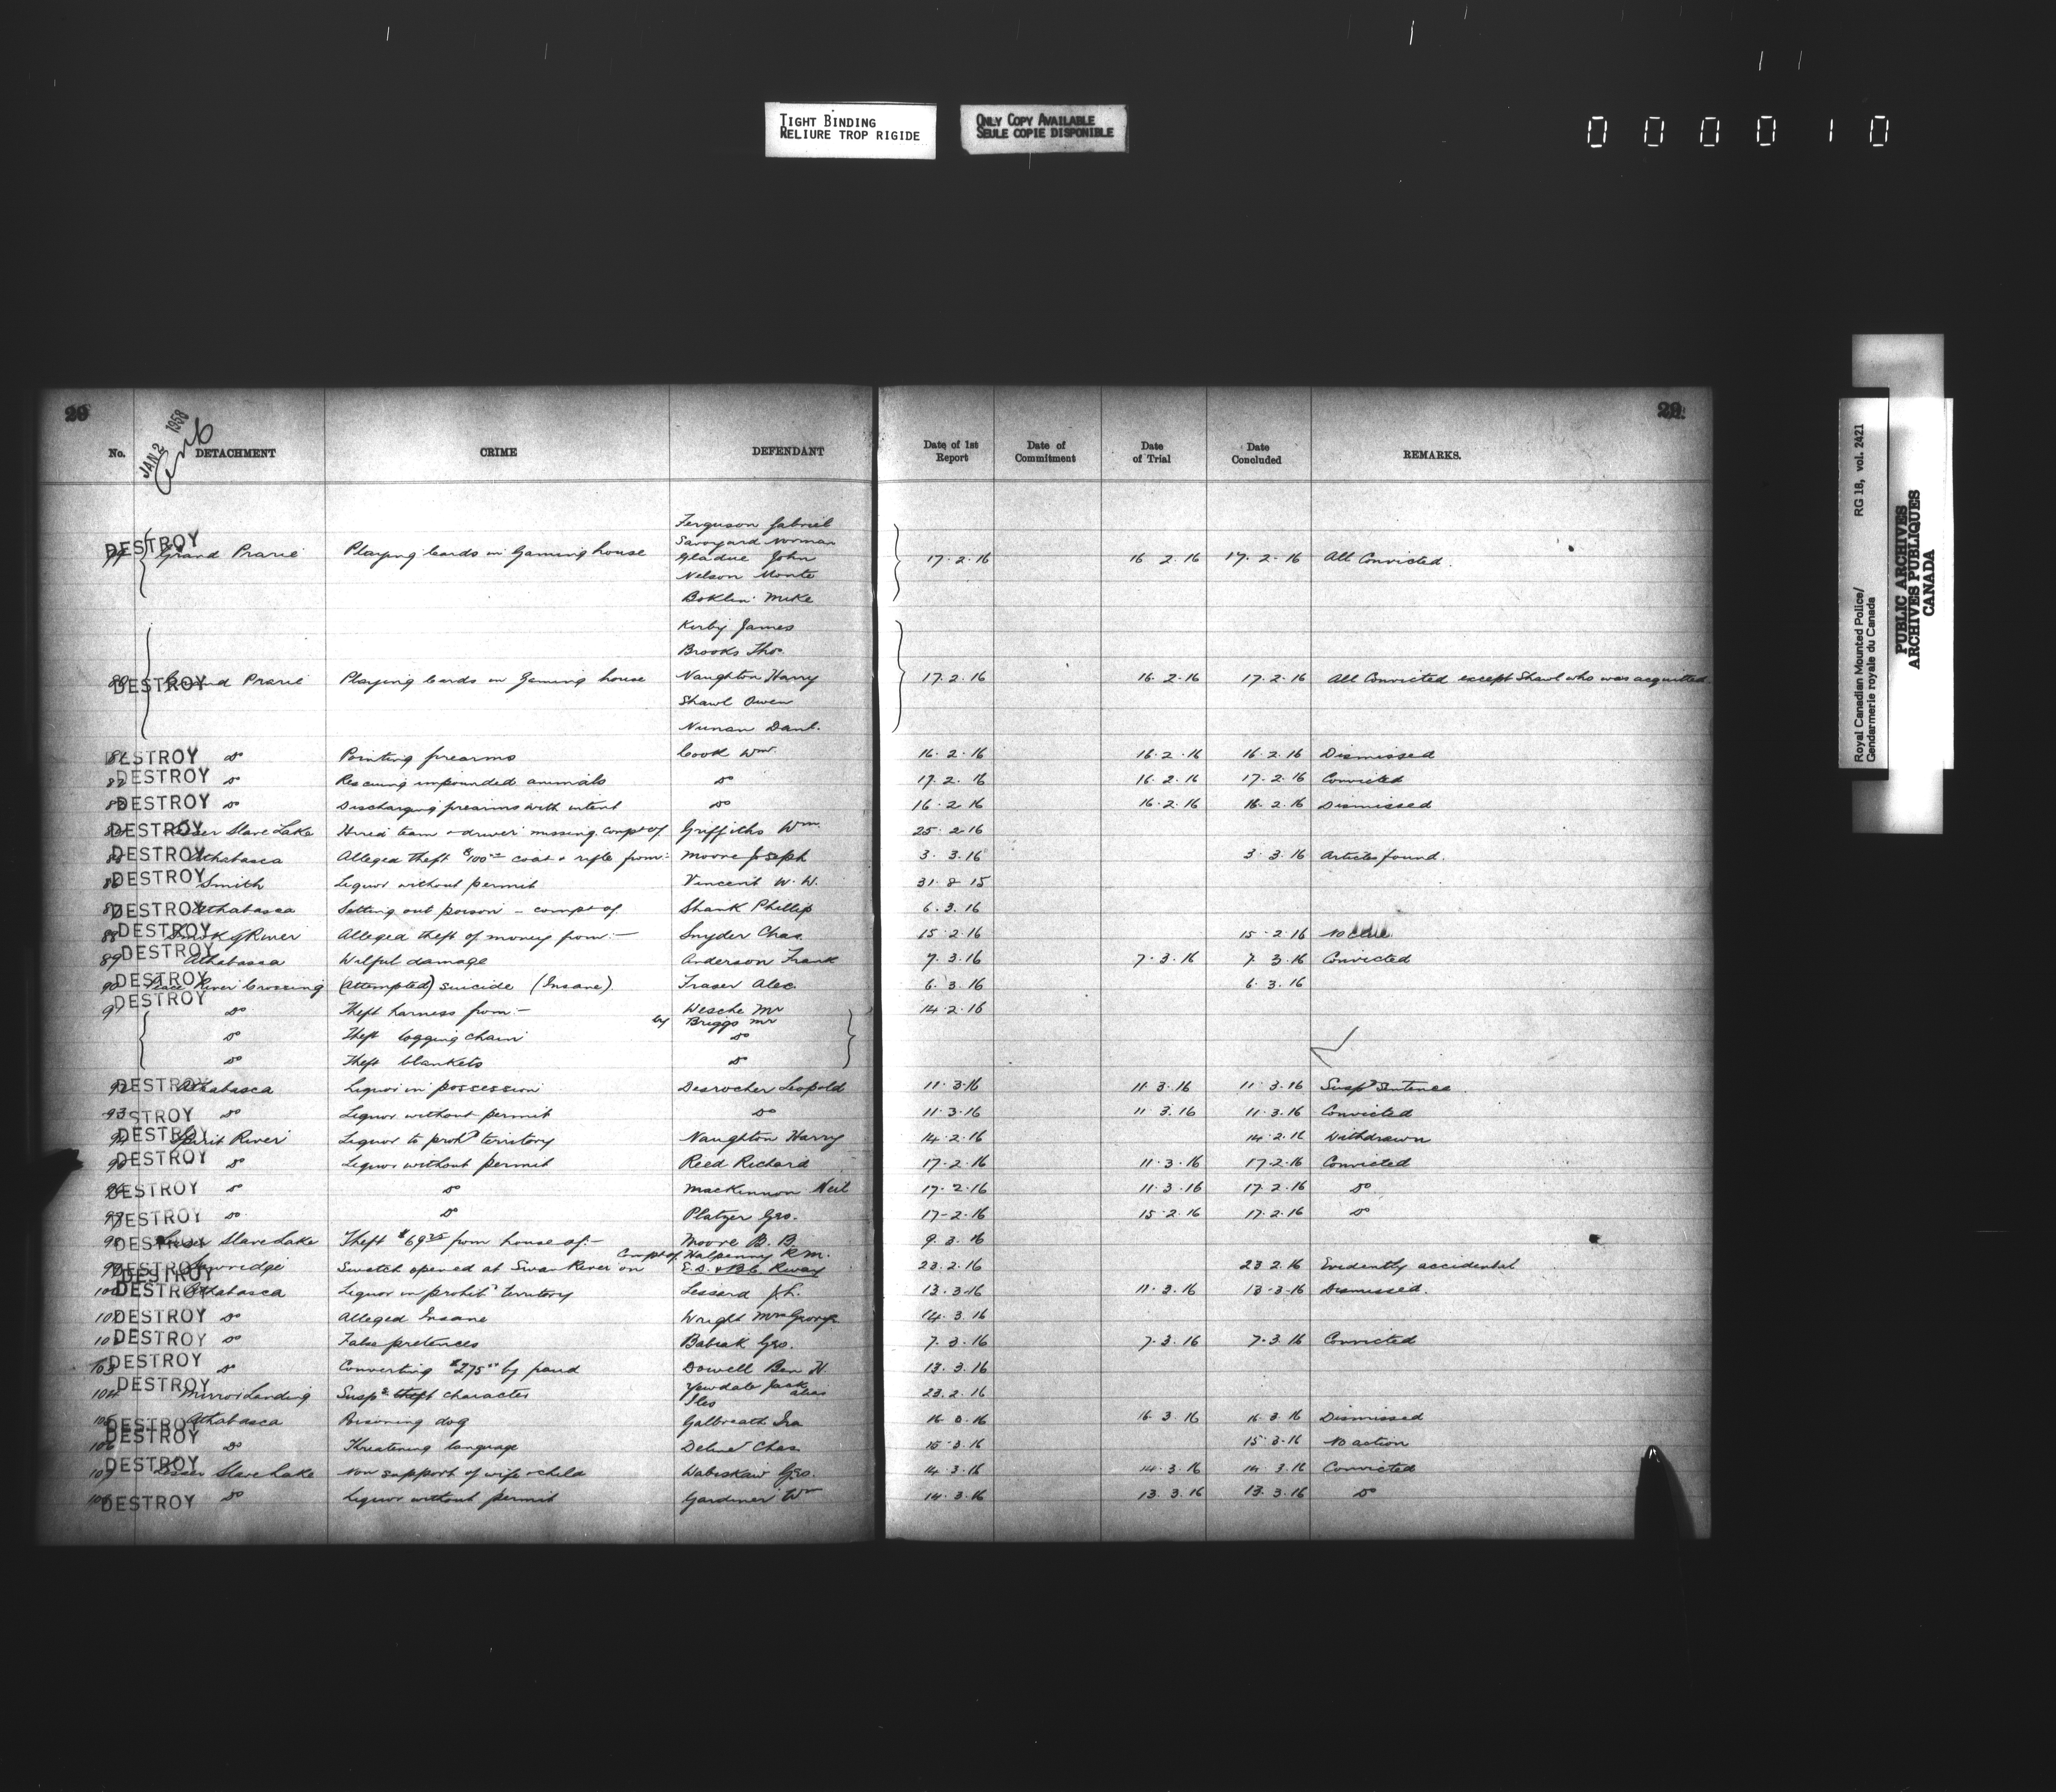 TIGHT BINDING
RELIURE TROP RIGIDE
ONLY COPY AVAILABLE
SEULE COPIE DISPONIBLE
0 0 0 0 1 0
Royal Canadian Mounted Police/ RG 18, vol. 2421
Gendarmerie royale du Canada
PUBLIC ARCHIVES
ARCHIVES PUBLIQUES
CANADA
29 29
JAN 2 1958
No. DETACHMENT CRIME DEFENDANT Date of 1st Report Date of Commitment Date of Trial Date Concluded REMARKS.
Ferguson Gabriel
Savoyard Norman
DESTROY Grand Prarie Playing Cards in Gaming house Gladue John 17.2.16 16.2.16 17.2.16 All Convicted.
Nelson Monte
Boklin Mike
Kirby James
Brooks Thos.
DESTROY Grand Prarie Playing Cards in Gaming house Naughton Harry 17.2.16 16.2.16 17.2.16 All Convicted except Shawl who was acquitted
Shawl Owen
Nunan Danl.
81 DESTROY Do Pointing firearms Cook Wm. 16.2.16 16.2.16 16.2.16 Dismissed
82 DESTROY Do Rescuing impounded animals Do 17.2.16 16.2.16 17.2.16 Convicted
83 DESTROY Do Discharging firearms with intent Do 16.2.16 16.2.16 16.2.16 Dismissed
DESTROY Lesser Slave Lake Hired team & driver missing, compt of Griffiths Wm 25.2.16
85 DESTROY Athabasca Alleged theft $100.00 coat & rifle from:- Moore Joseph 3.3.16 3.3.16 Articles found.
86 DESTROY Smith Liquor without permit Vincent W.W. 31.8.15
87 DESTROY Athabasca Setting out poison - compt of Shank Phillip 6.3.16
88 DESTROY Smoky River Alleged theft of money from:- Snyder Chas. 15.2.16 15.2.16 No clue
89 DESTROY Athabasca Wilful damage Anderson Frank 7.3.16 7.3.16 7.3.16 Convicted
90 DESTROY Peace River Crossing (Attempted) suicide (Insane) Fraser Alec. 6.3.16 6.3.16
91 DESTROY Do Theft harness from:- Wesche Mr 14.2.16
by Briggs Mr
Do Theft logging chain Do
Do Theft blankets Do
92 DESTROY Athabasca Liquor in possession Desrocher Leopold 11.3.16 11.3.16 11.3.16 Suspd Sentence.
93 DESTROY Do Liquor without permit Do 11.3.16 11.3.16 11.3.16 Convicted
94 DESTROY Spirit River Liquor to prohd territory Naughton Harry 14.2.16 14.2.16 Withdrawn
95 DESTROY Do Liquor without permit Reed Richard 17.2.16 11.3.16 17.2.16 Convicted
96 DESTROY Do Do MacKinnon Neil 17.2.16 11.3.16 17.2.16 Do
97 DESTROY Do Do Platzer Geo. 17-2.16 15.2.16 17.2.16 Do
98 DESTROY Lesser Slave Lake Theft from house of:- Moore B. B. 9.3.16
Compt of Halpenny R.M.
99 DESTROY Sawridge Switch opened at Swan River on E.D. & B.C. Rway 23.2.16 23.2.16 Evidently accidental
100 DESTROY Athabasca Liquor in prohibd territory Lessard J.L. 13.3.16 11.3.16 13.3.16 Dismissed.
101 DESTROY Do Alleged Insane Wright Mrs George 14.3.16
102 DESTROY Do False pretences Babiak Geo. 7.3.16 7.3.16 7.3.16 Convicted
103 DESTROY Do Converting $275.00 by fraud Dowell Ben H. 13.3.16
104 DESTROY Mirror Landing Suspd theft character Yewdale Jack alias 23.2.16
Iles
105 DESTROY Athabasca Poisoning dog Galbreath Ira 16.3.16 16.3.16 16.3.16 Dismissed
106 DESTROY Do Threatening language Chas 15.3.16 15.3.16 No action
107 DESTROY Lesser Slave Lake Non support of wife & child Wabiskaw Geo. 14.3.16 14.3.16 14.3.16 Convicted
108 DESTROY Do Liquor without permit Gardiner Wm 14.3.16 13.3.16 13.3.16 Do